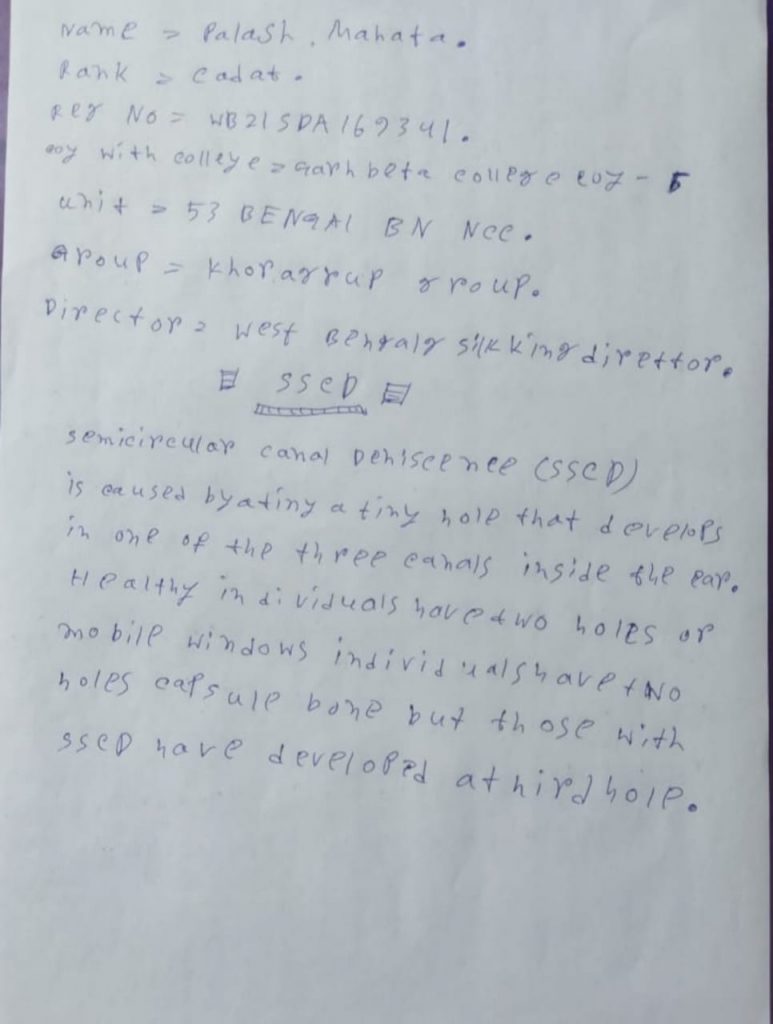 Name = Palash. Mahata.
Rank = Cadat.
Reg No = WB21SDA169341.
coy with colleye = Garhbeta college coy - 5
unit = 53 BENGAl BN NCC.
Group = Khoragrup group.
Director = West Bengalg silkking direttor.
SSCD
semicircular canal Dehiscence (SSCD)
is caused byatiny a tiny hole that develops
in one of the three canals inside the ear.
Healthy individuals have two holes or
mobile windows individuals have two
holes capsule bone but those with
SSCD have developed athird hole.